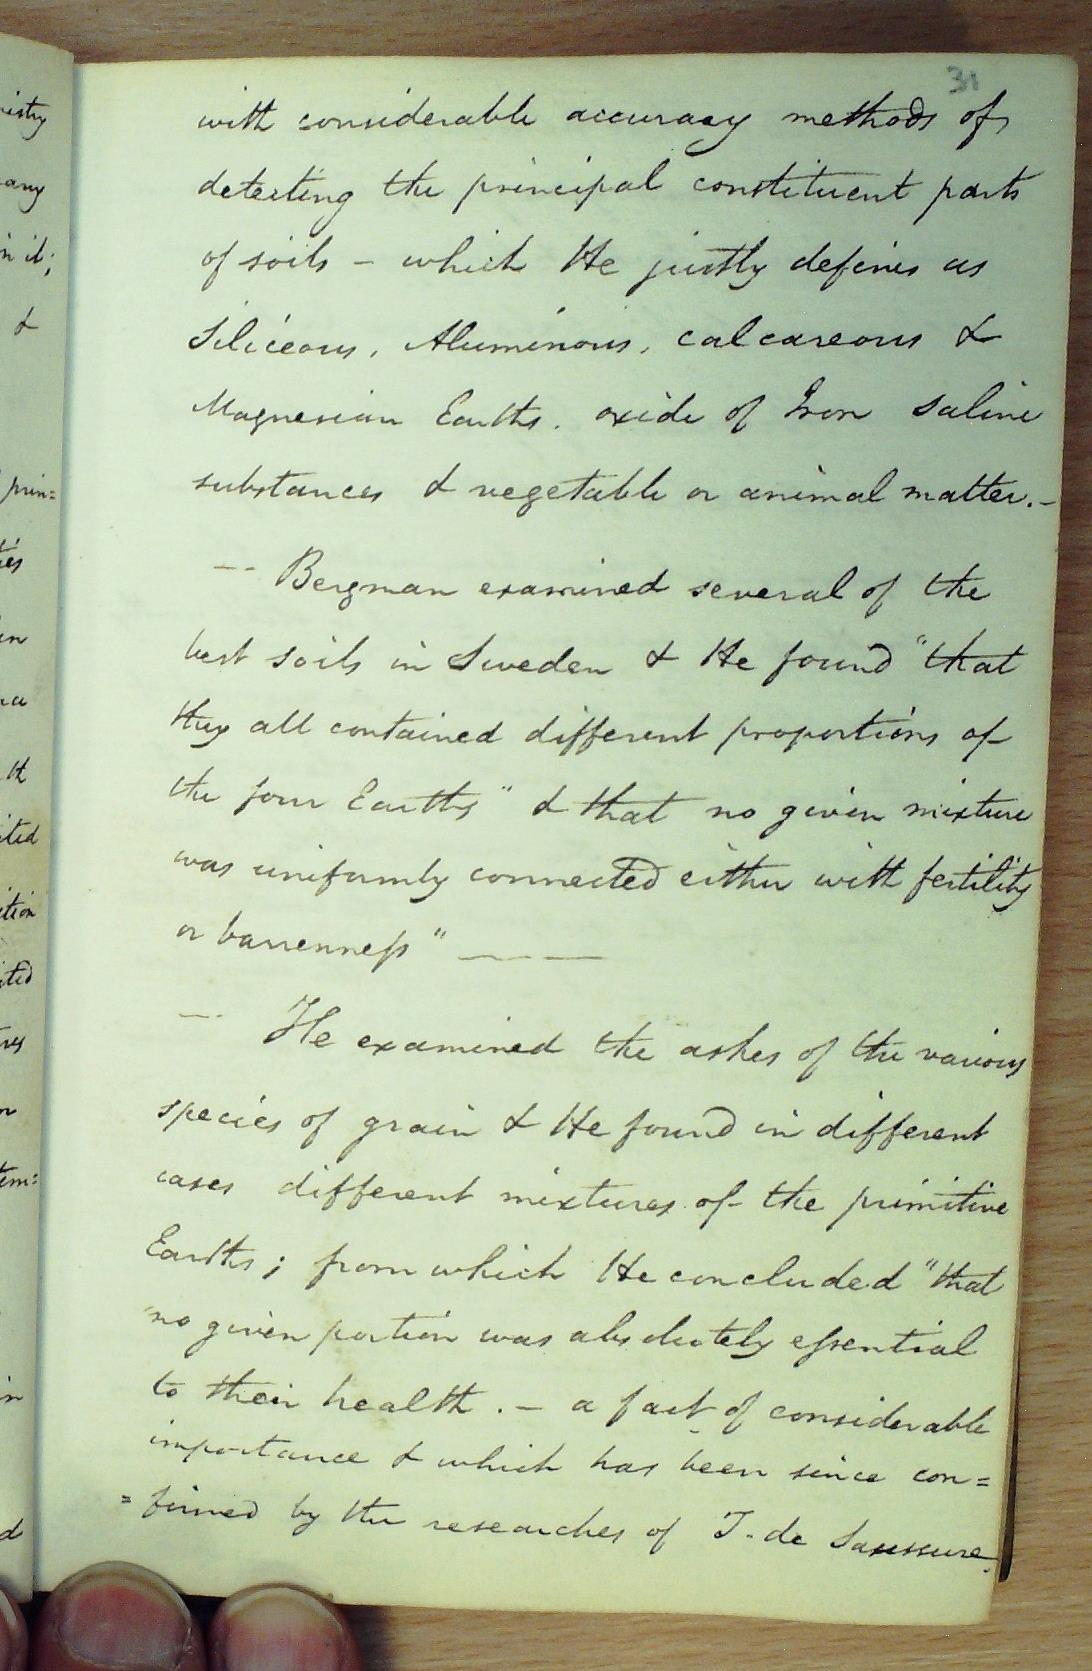 31
with considerable accuracy methods of
detecting the principal constituent parts
of soils – which He justly defines as
Siliceous, Aluminous, calcareous &
Magnesian Earths. oxide of Iron saline
substances & vegetable or animal matter. –
-- Bergman examined several of the
best soils in Sweden & He found "that
they all contained different proportions of
the four Earths" & that no given mixture
was uniformly connected either with fertility
or barrenneſs" ———
–. He examined the ashes of the various
species of grain & He found in different
cases different mixtures of the primitive
Earths; from which He concluded "that
"no given portion was absolutely eſsential
to their health. – a fact of considerable
importance & which has been since con=
=firmed by the researches of T. de Saussure.
istry
any
in it;
&
prin=
ties
in
th
ited
ition
ted
res
n
tem=
in
d